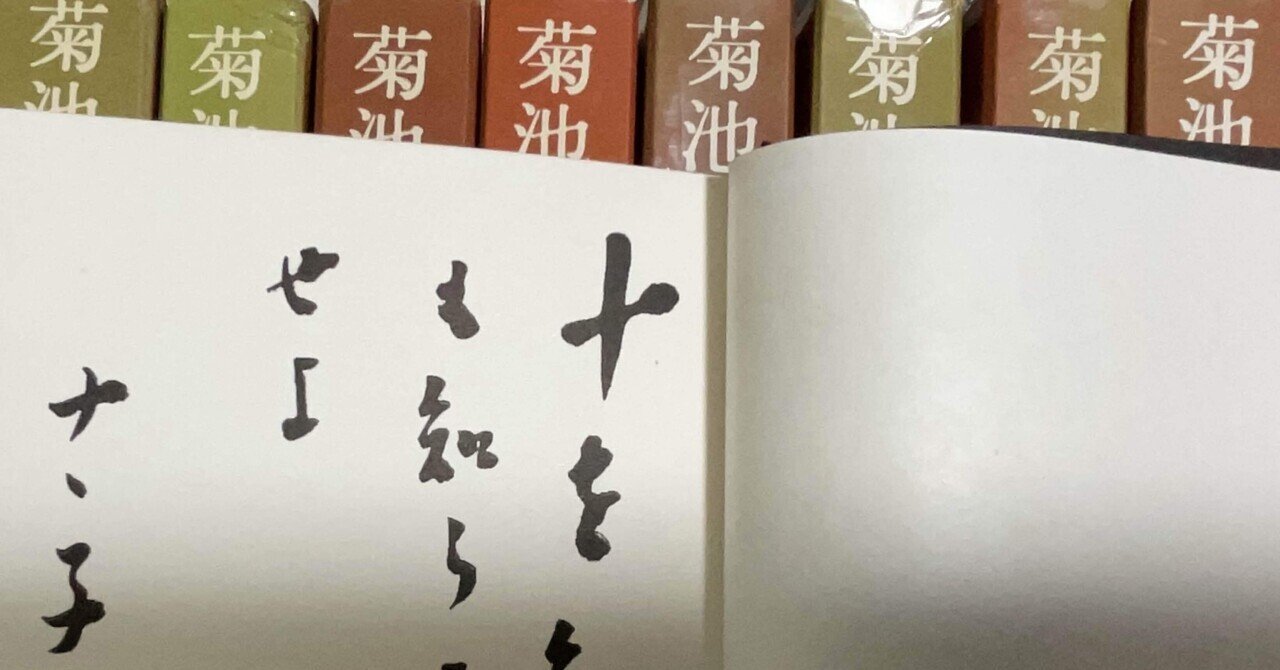 菊池
菊池
菊池
菊池
菊池
菊池
菊池
菊池
十を
も知ら
せよ
ナヽ子